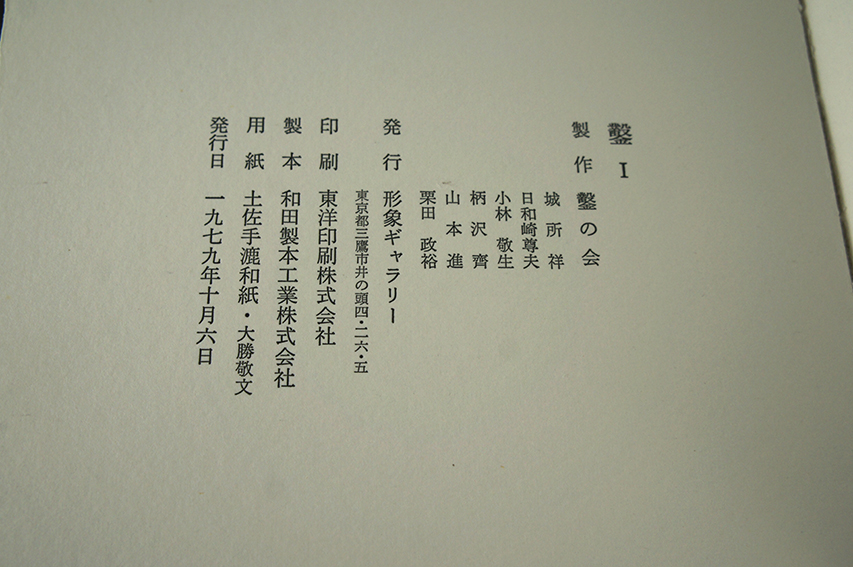 鑿 I
製作 鑿の会
城所 祥
日和崎尊夫
小林 敬生
柄沢 齊
山本 進
栗田 政裕
発行 形象ギャラリー
東京都三鷹市井の頭四・二六・五
印刷 東洋印刷株式会社
製本 和田製本工業株式会社
用紙 土佐手漉和紙・大勝敬文
発行日 一九七九年十月六日